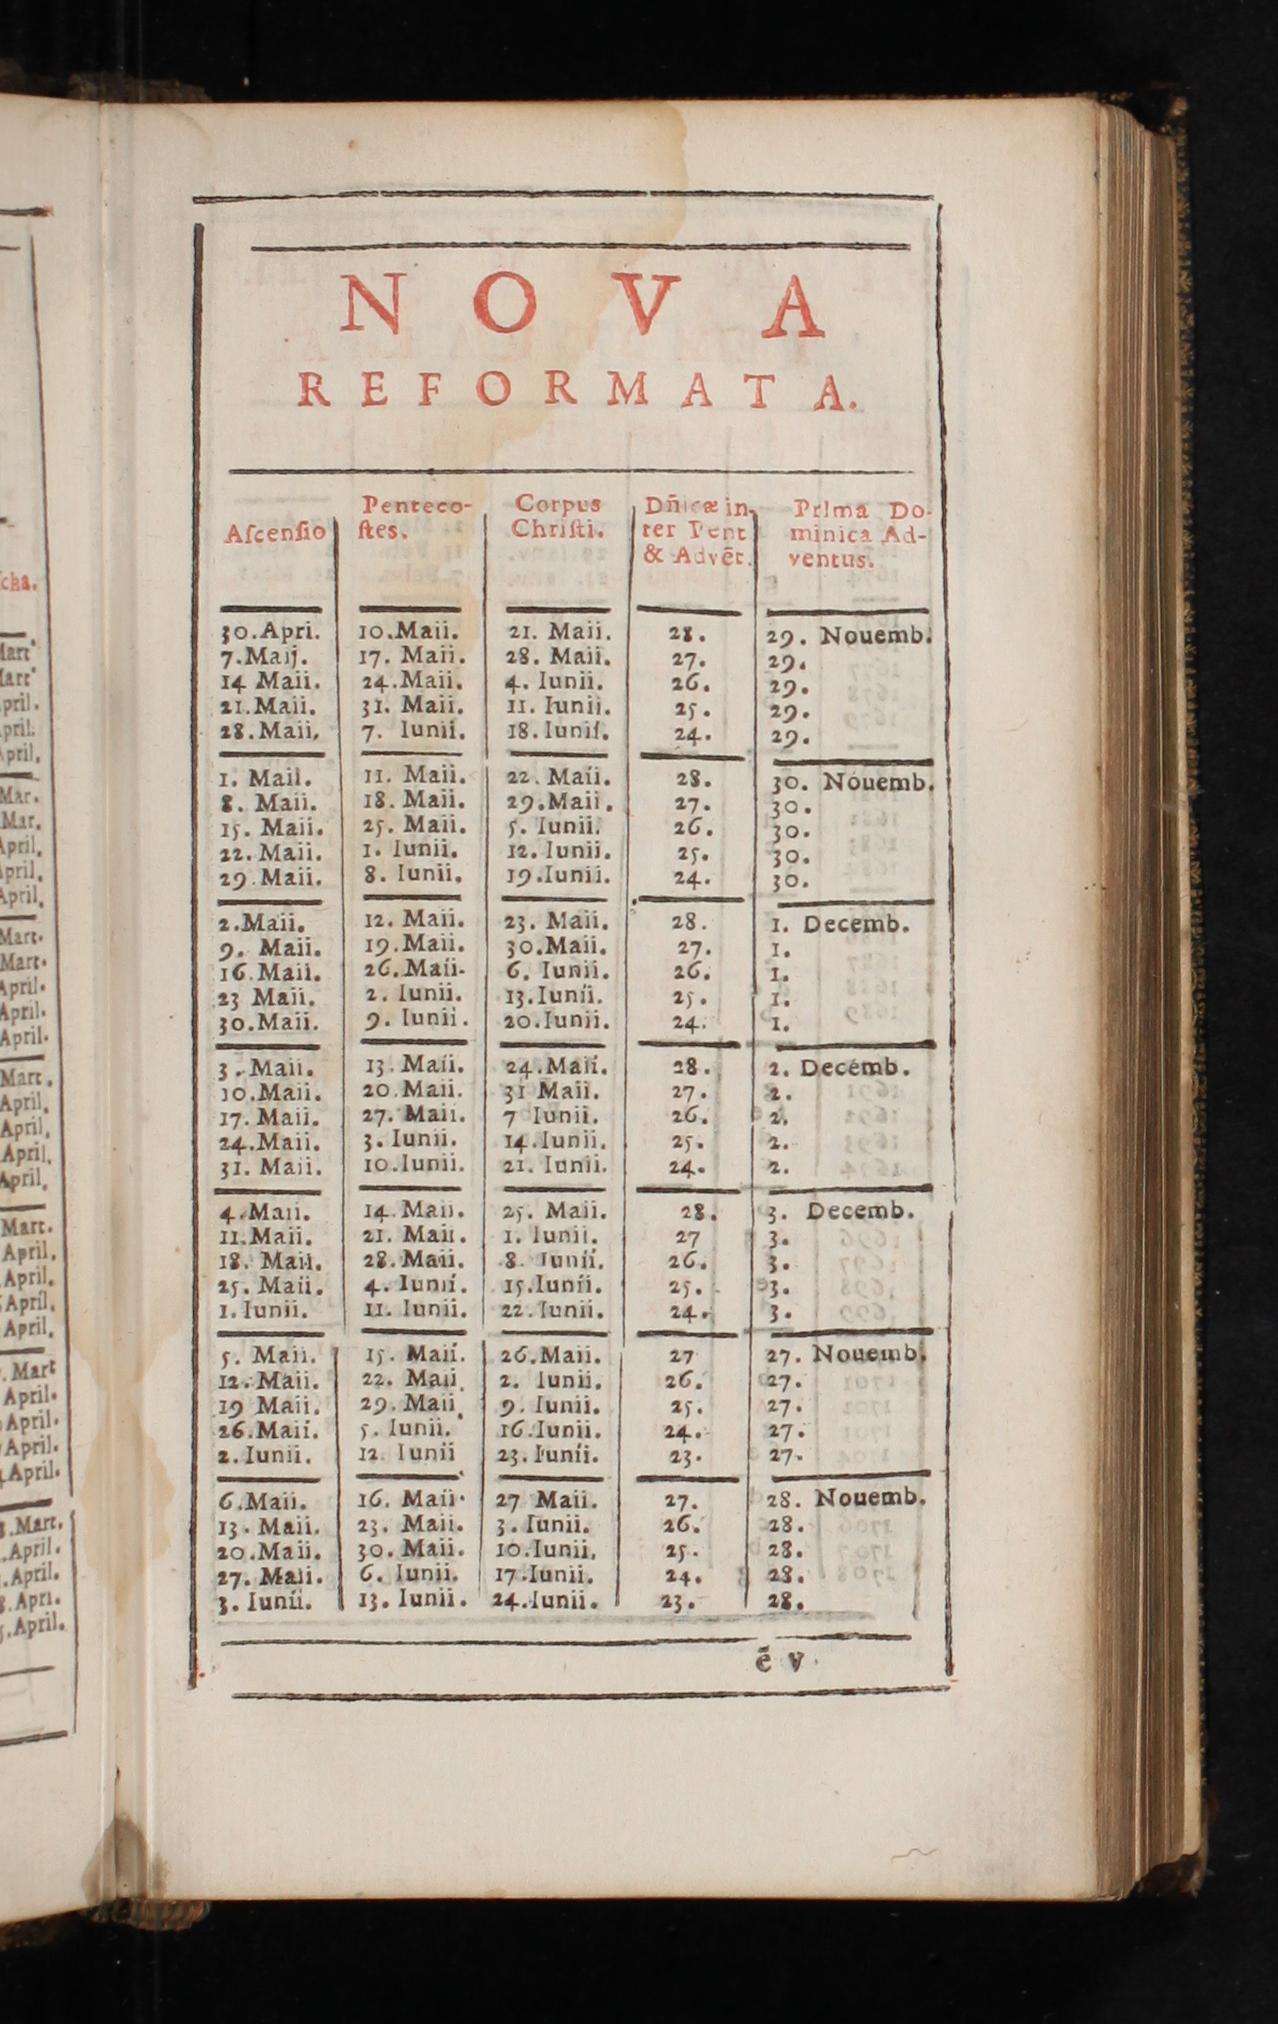 NOVA
REFORMATA.
Aſcenſio Penteco-ſtes. Corpus Chriſti. Dñicæ in-ter Pent & Advēt. Prima Do-minica Ad-ventus.
30.Apri. 10.Maii. 21. Maii. 28. 29. Nouemb.
7.Maij. 17. Maii. 28. Maii. 27. 29.
14 Maii. 24.Maii. 4. Iunii. 26. 29.
21.Maii. 31. Maii. 11. Iunii. 25. 29.
28.Maii. 7. Iunii. 18.Iunii. 24. 29.
1. Maii. 11. Maii. 22. Maii. 28. 30. Nouemb.
8. Maii. 18. Maii. 29.Maii. 27. 30.
15. Maii. 25. Maii. 5. Iunii. 26. 30.
22. Maii. 1. Iunii. 12. Iunii. 25. 30.
29.Maii. 8. Iunii. 19.Iunii. 24. 30.
2.Maii. 12. Maii. 23. Maii. 28. 1. Decemb.
9. Maii. 19.Maii. 30.Maii. 27. 1.
16.Maii. 26.Maii. 6. Iunii. 26. 1.
23 Maii. 2. Iunii. 13.Iunii. 25. 1.
30.Maii. 9. Iunii. 20.Iunii. 24. 1.
3. Maii. 13. Maii. 24.Maii. 28. 2. Decemb.
10.Maii. 20.Maii. 31 Maii. 27. 2.
17. Maii. 27. Maii. 7 Iunii. 26. 2.
24.Maii. 3. Iunii. 14.Iunii. 25. 2.
31. Maii. 10.Iunii. 21. Iunii. 24. 2.
4.Maii. 14.Maii. 25. Maii. 28. 3. Decemb.
11.Maii. 21. Maii. 1. Iunii. 27 3.
18. Maii. 28.Maii. 8. Iunii. 26. 3.
25. Maii. 4. Iunii. 15.Iunii. 25. 3.
1.Iunii. 11. Iunii. 22. Iunii. 24. 3.
5. Maii. 15. Maii. 26.Maii. 27 27. Nouemb.
12. Maii. 22. Maii 2. Iunii. 26. 27.
19 Maii. 29. Maii 9. Iunii. 25. 27.
26.Maii. 5. Iunii. 16.Iunii. 24. 27.
2. Iunii. 12. Iunii 23. Iunii. 23. 27.
6.Maii. 16. Maii. 27 Maii. 27. 28. Nouemb.
13. Maii. 23. Maii. 3. Iunii. 26. 28.
20.Maii. 30. Maii. 10.Iunii. 25. 28.
27. Maii. 6. Iunii. 17.Iunii. 24. 28.
3. Iunii. 13. Iunii. 24.Iunii. 23. 28.
ē v